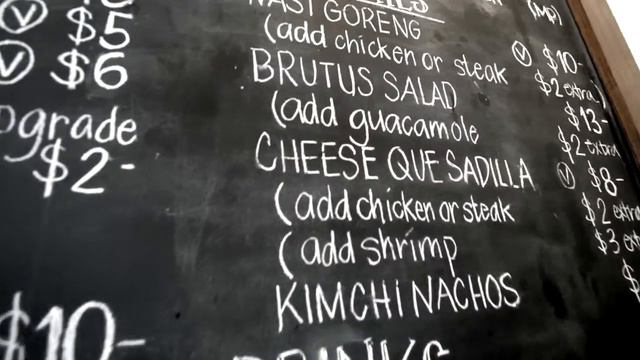 $5
V $6
$2-
$10-
NASI GORENG V $10-
(add chicken or steak $2 extra)
BRUTUS SALAD $13-
(add guacamole $2 extra
CHEESE QUESADILLA V $8-
(add chicken or steak $2 extra
(add shrimp $3
KIMCHI NACHOS $
DRINKS